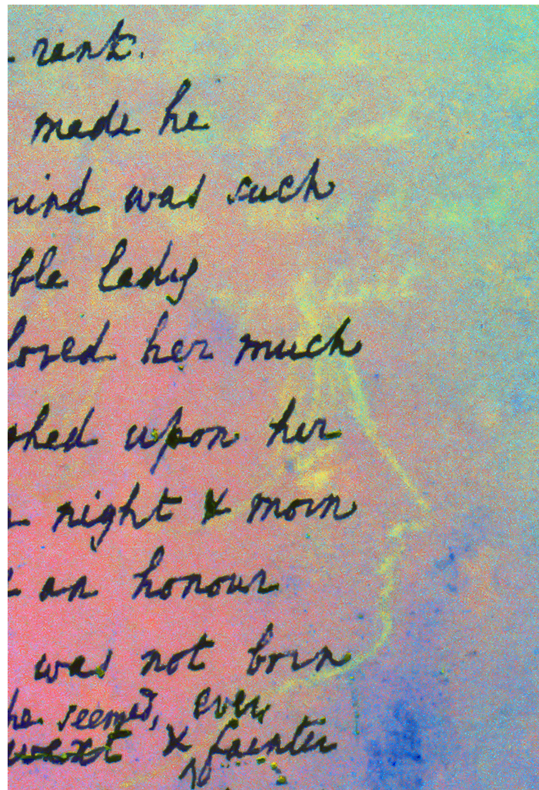 rank.
made he
mind was such
ble lady
loved her much
shed upon her
night & morn
an honour
was not born
he seemed, ever
& fainter